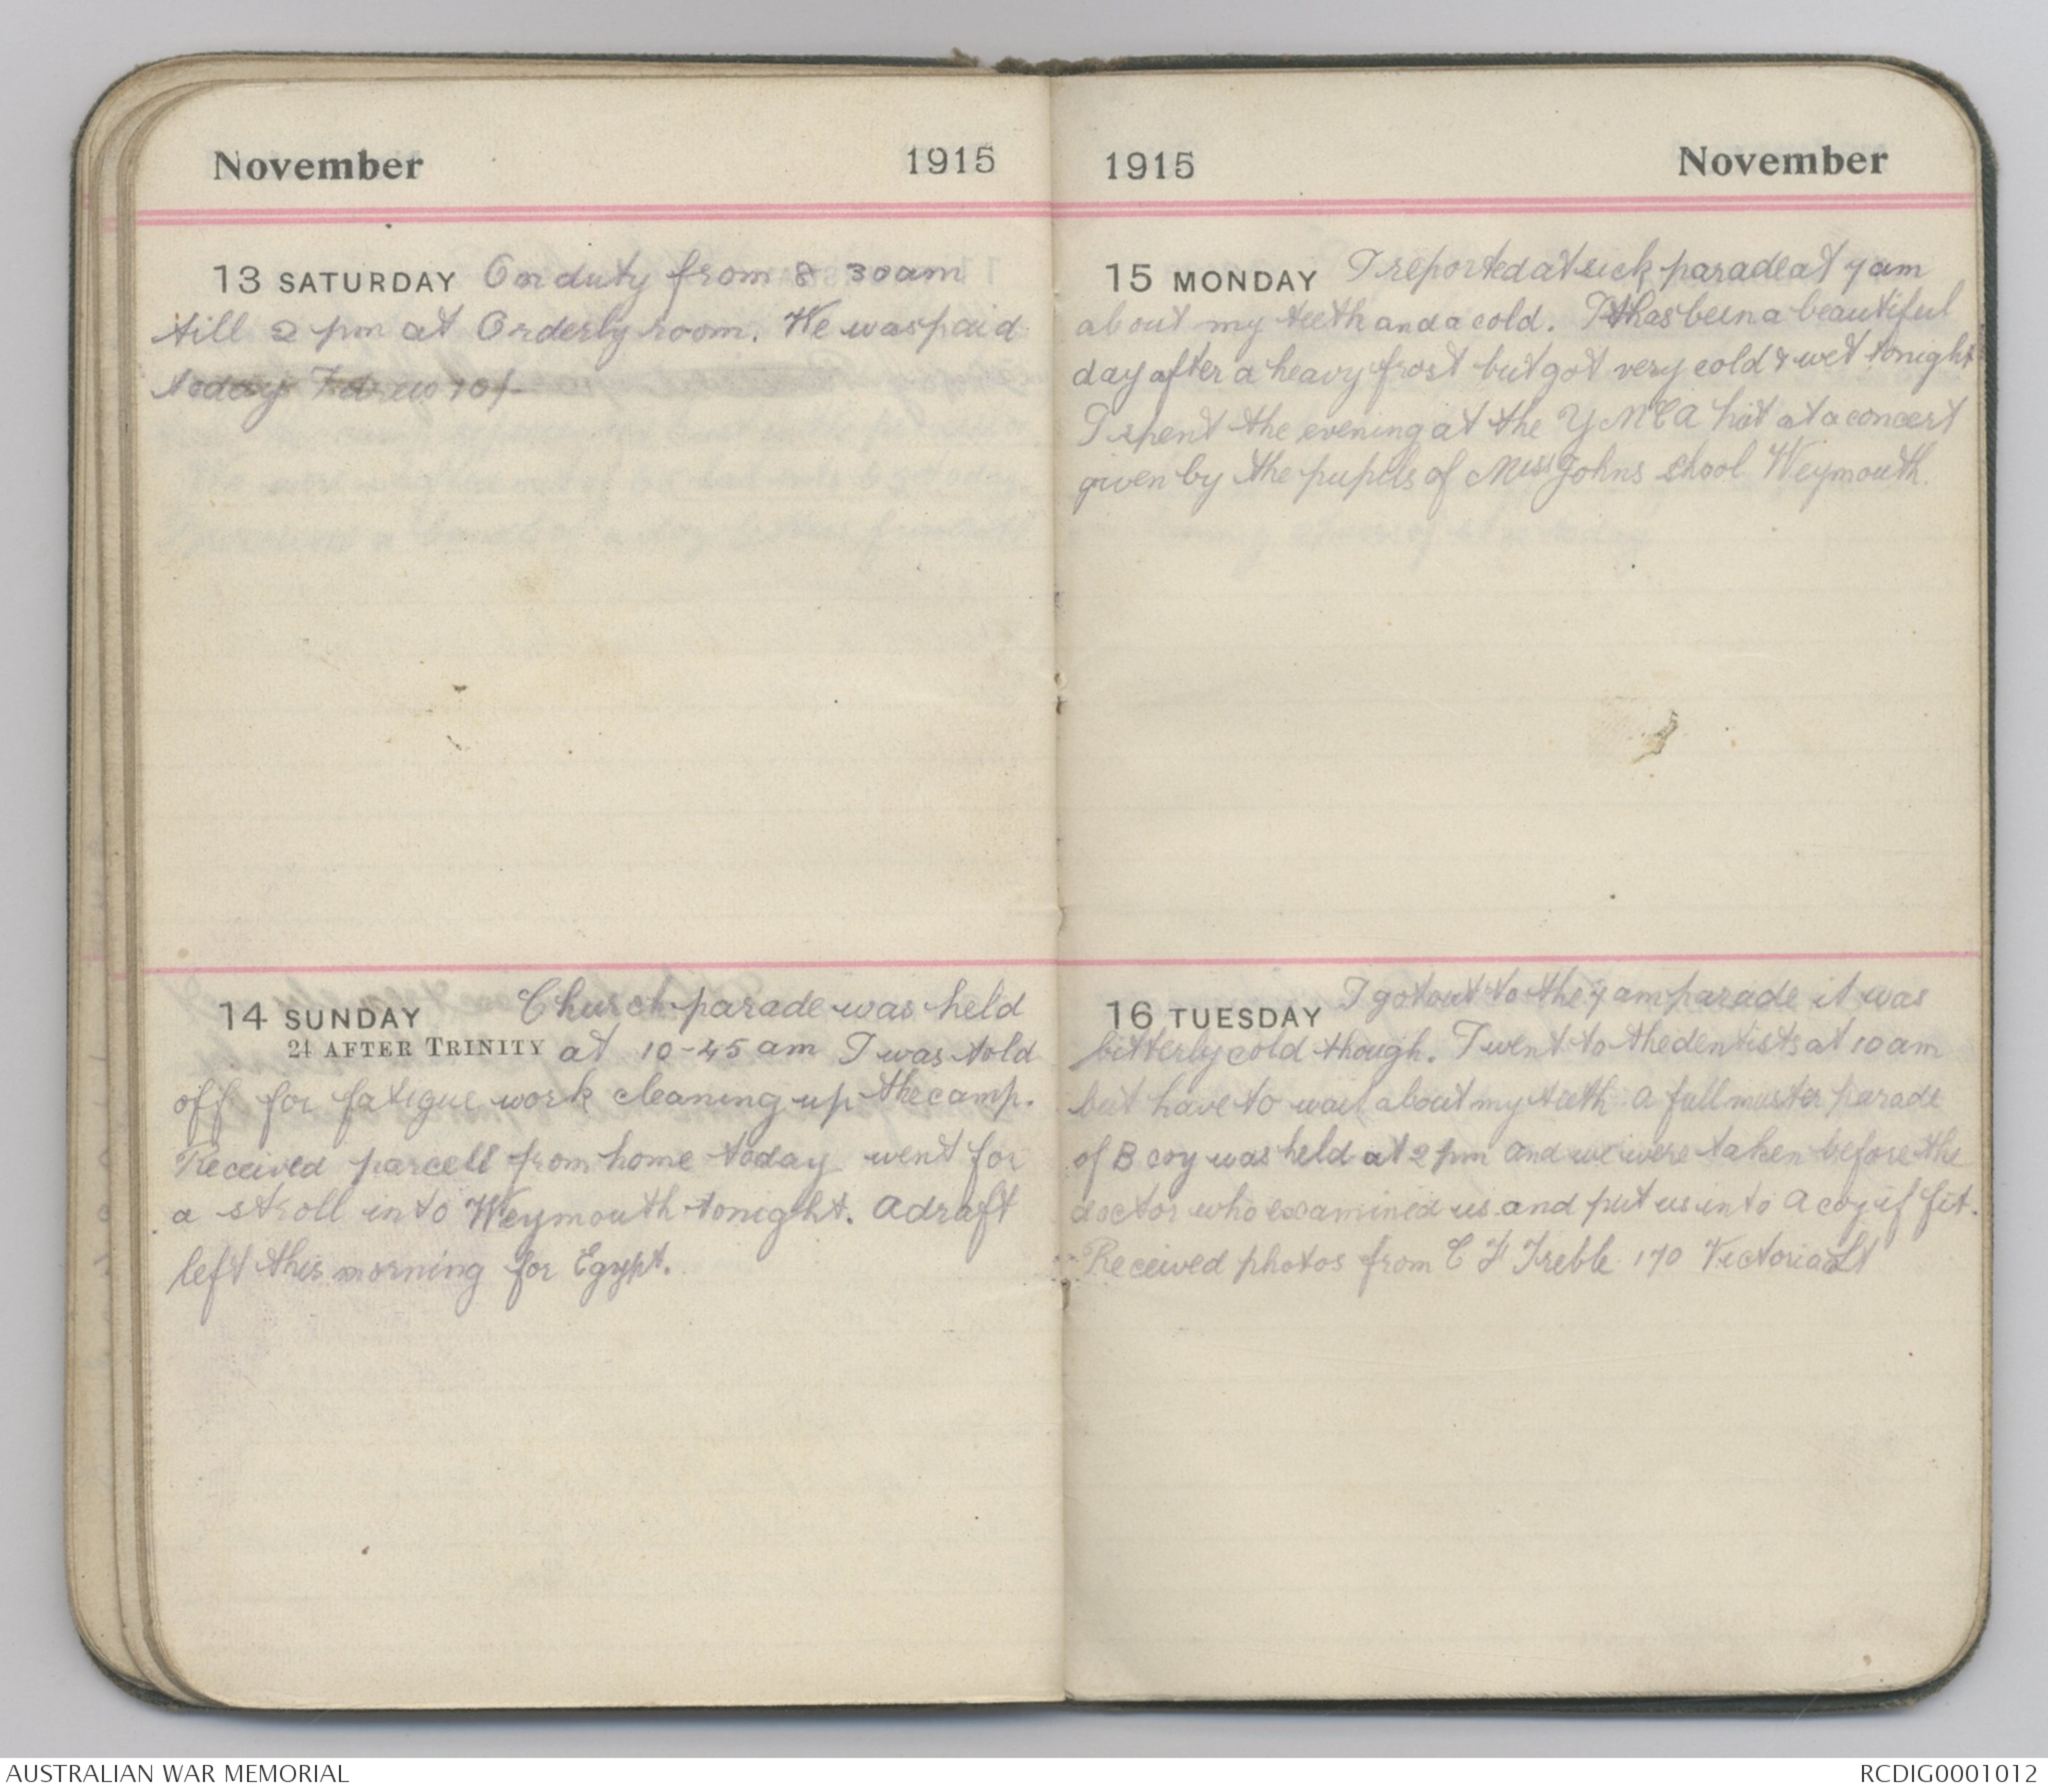 November 1915
13 SATURDAY On duty from 8 30 am
till 2 pm at Orderly room. We was paid
today I drew 10/-
14 SUNDAY Church parade was held
24 AFTER TRINITY at 10-45 am I was told
off for fatigue work cleaning up the camp.
Received parcell from home today went for
a stroll into Weymouth tonight. A draft
left this morning for Egypt.
1915 November
15 MONDAY I reported at sick parade at 7 am
about my teeth and a cold. It has been a beautiful
day after a heavy frost but got very cold & wet tonight
I spent the evening at the YMCA hut at a concert
given by the pupils of Miss Johns shool Weymouth.
16 TUESDAY I got out to the 7 am parade it was
bitterly cold though. I went to the dentists at 10 am
but have to wait about my teeth A full muster parade
of B coy was held at 2 pm and we were taken before the
doctor who examined us and put us into A coy if fit.
Received photos from C F Treble 170 Victoria St
AUSTRALIAN WAR MEMORIAL RCDIG0001012